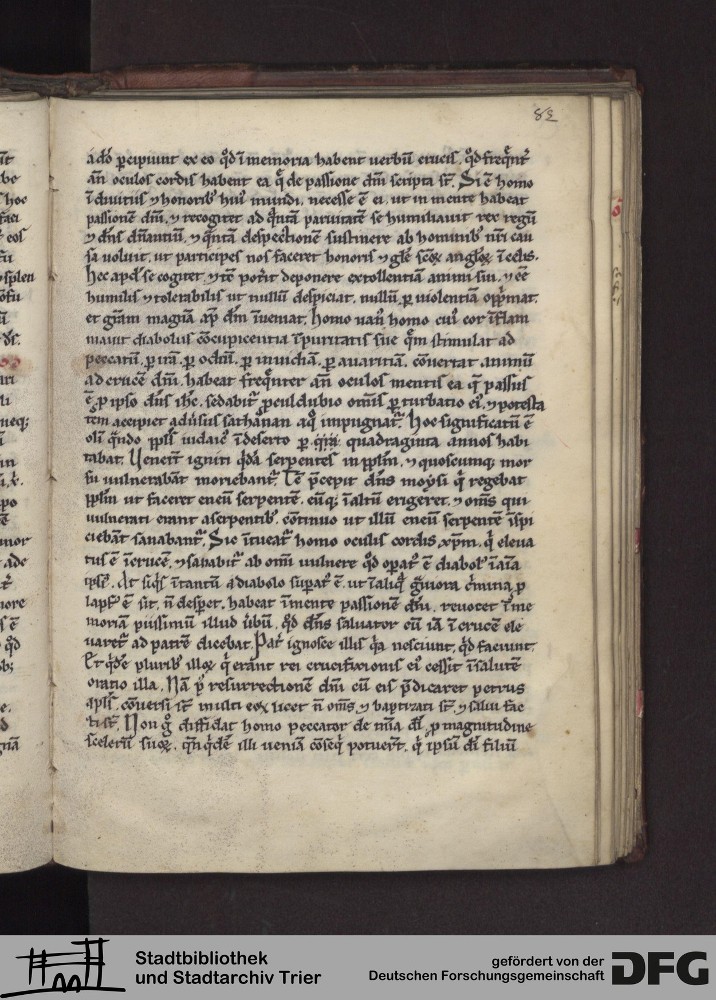 82
a dõ ꝑcipiunt ex eo qd̾ ĩ memoria habent uerbũ crucis, qd̾ freq̃nt̃
añ oculos cordis habent ea q̃ de passione dñi scripta sť. Si ẽ homo
ĩ diuitiis ⁊ honorib; hui᷒ mundi, necesse ẽ ei, ut in mente habeat
passionẽ dñi, ⁊ recogitet ad q̃ntã paruitatẽ se humiliauit rex regũ
⁊ dñs dñantiũ, ⁊ q̃ntã despectionẽ sustinere ab hominib; nr̃i cau
sa uoluit, ut participes nos faceret honoris ⁊ glẽ scõꝝ angl̾oꝝ ĩ celis.
Hec apd̾ se cogitet, ⁊ tc̃ potĩt deponere extollentiã animi sui, ⁊ eẽ
humilis ⁊ tolerabilis ut nullũ despiciat, nullũ ꝑ uiolentiã opp̃mat,
et gr̃am magnã ap̃ dm̃ ĩueniat. Homo uan᷒ homo cui᷒ cor ĩflam
mauit diabolus cõcupiscentia ĩpuritatis sue q̃m stimulat ad
peccatũ, ꝑ irã, ꝑ odiũ, ꝑ inuidiã, ꝑ auaritiã, cõuertat animũ
ad crucẽ dñi, habeat freq̃nter añ oculos mentis ea q̃ passus
ẽ ꝓ ipso dñs ihc̃, sedabit᷑ ꝓcul dubio om̃is ꝑturbatio ei᷒, ⁊ potesta
tem accipiet aduersus sathanan a q̊ impugnat᷑. Hoc significatũ ẽ
oli q̃ndo ppl̾s iudaic᷒ ĩ deserto ꝑ quadraginta annos habi
tabat. Ueneřt igniti q̃dã serpentes in ppl̾m, ⁊ quoscumq; mor
su uulnerabãt moriebant᷑. Tc̃ p̃cepit dñs moysi q̃ regebat
ppl̾m ut faceret eneũ serpentẽ, eũq; ĩ altũ erigeret, ⁊ om̃s qui
uulnerati erant a serpentib; cõtinuo ut illũ eneũ serpentẽ ĩspi
ciebãt sanabant᷑. Sic ĩtueat᷑ homo oculis cordis xp̃m, q̃ eleua
tus ẽ ĩ crucẽ, ⁊ sanabit᷑ ab omĩ uulnere qd̾ opat᷒ ẽ diabol᷒ ĩ aĩa
ipsi᷒. At siq̃s ĩtantũ a diabolo supat᷑ ẽ, ut ĩ aliq̃ grauiora c̃mina ꝑ
laps᷒ ẽ sit, ñ despet, habeat ĩ mente passionẽ dñi, reuocet ĩ me
moriam piissimũ illud ũbũ, qd̾ dñs saluator cũ iã ĩ crucẽ ele
uaret᷑ ad patrẽ dicebat. Pat̃ ignosce illis q̃a nesciunt, qd̾ faciunt.
Et q̃dẽ plurib; illoꝝ q̃ erãnt rei crucifixionis ei᷒ cessit ĩ salutẽ
oratio illa. Nã p᷒ resurrectionẽ dñi cũ eis p̃dicaret petrus
apl̾s, cõuersi sť multi eoꝝ licet ñ om̃s, ⁊ baptizati sť, ⁊ salui fac
ti sť. Non g̊ diffidat homo peccator de mĩa dĩ, ꝓ magnitudine
scelerũ suoꝝ, qñ q̃dẽ illi ueniã cõseq̃ potuer̃t, q̃ ipsũ dĩ filiũ
Stadtbibliothek
und Stadtarchiv Trier
gefördert von der
Deutschen Forschungsgemeinschaft
DFG